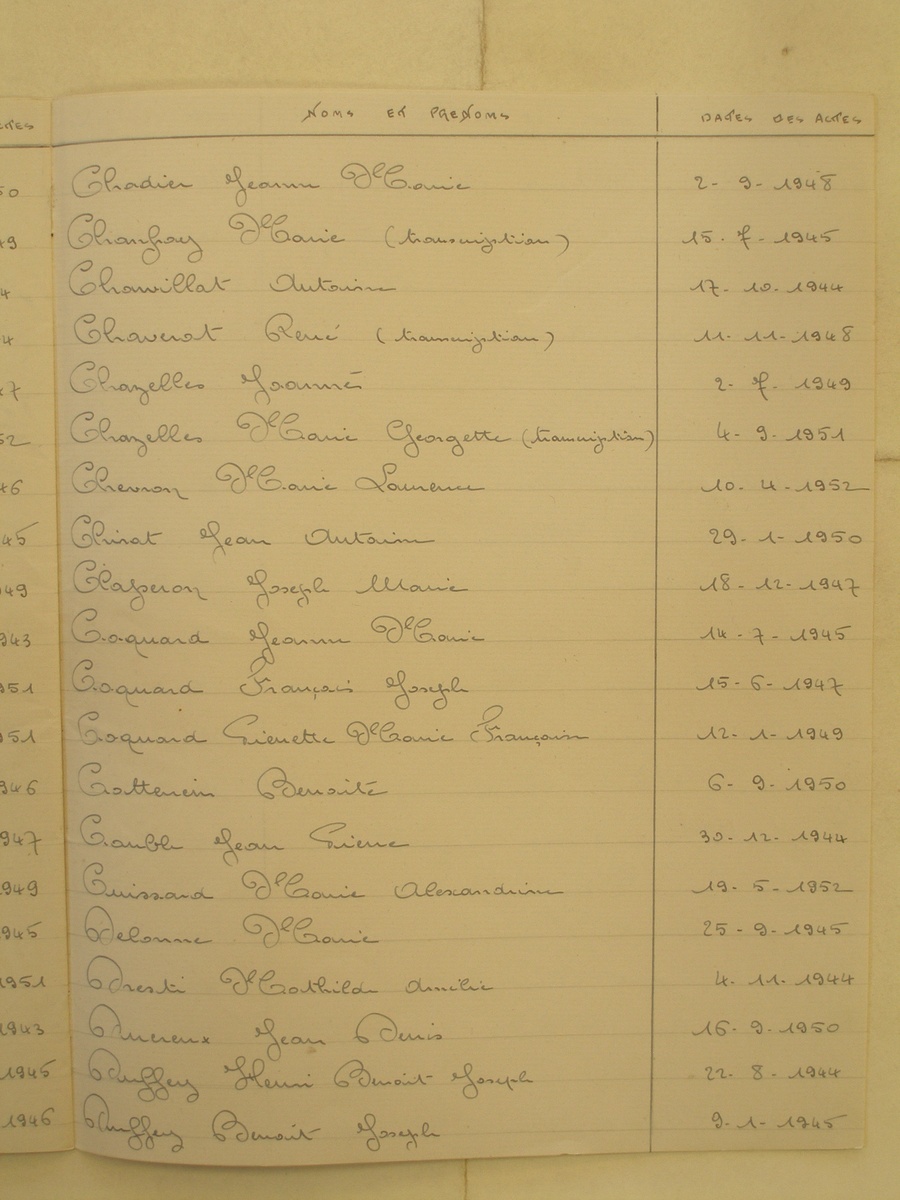 CTES NOMS ET PRENOMS DATES DES ACTES
50 Chadier Jeanne Marie 2- 9- 1948
49 Marie (transcription) 15. 7- 1945
4 Chavillat Antoine 17- 10- 1944
4 Chaverot René (transcription) 11- 11- 1948
47 Chazelles Joannès 2- 7- 1949
52 Chazelles Marie Georgette (transcription) 4- 9- 1951
46 Chevron Marie Laurence 10- 4- 1952
45 Chirat Jean Antoine 29- 1- 1950
949 Claperon Joseph Marie 18- 12- 1947
943 Coquard Jeanne Marie 14- 7- 1945
951 Coquard François Joseph 15- 6- 1947
951 Coquard Pierrette Marie Françoise 12- 1- 1949
946 Cottencin Benoîte 6- 9- 1950
947 Jean Pierre 30- 12- 1944
949 Cuissard Marie Alexandrine 19- 5- 1952
945 Delorme Marie 25- 9- 1945
1951 Mathilde 4- 11- 1944
943 Ducreux Jean Denis 16- 9- 1950
1945 Duffey Henri Benoit Joseph 22- 8- 1944
1946 Duffey Benoit Joseph 9- 1- 1945